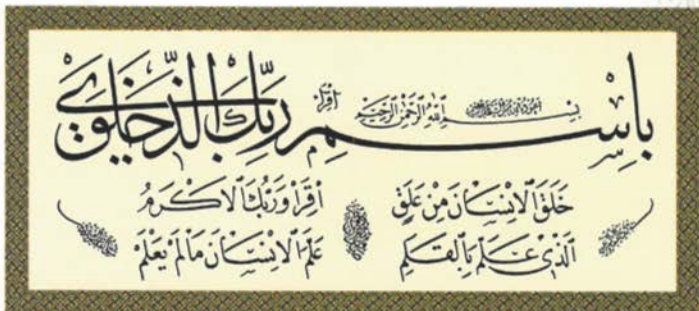 اعوذ بالله من الشيطان الرجيم
بِسْمِ اللهِ الرَّحْمٰنِ الرَّحِيْمِ
اِقْرَأْ
بِاسْمِ رَبِّكَ الَّذِي خَلَقَ
خَلَقَ الْاِنْسَانَ مِنْ عَلَقٍ
اِقْرَأْ وَرَبُّكَ الْاَكْرَمُ
الَّذِي عَلَّمَ بِالْقَلَمِ
عَلَّمَ الْاِنْسَانَ مَالَمْ يَعْلَمْ